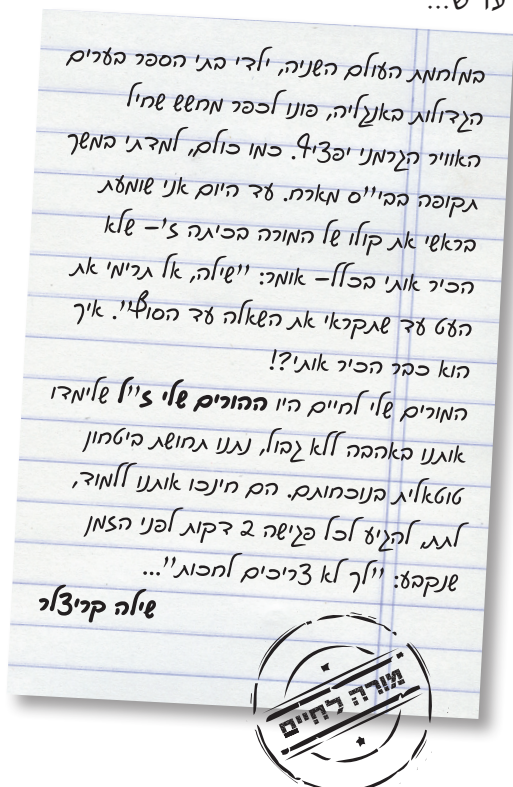 עד ש...
במלחמת העולם השניה, ילדי בתי הספר בערים
הגדולות באנגליה, פונו לכפר מחשש שחיל
האוויר הגרמני יפציץ. כמו כולם, למדתי במשך
תקופה בבי''ס מארח. עד היום אני שומעת
בראשי את קולו של המורה בכיתה ז'- שלא
הכיר אותי בכלל- אומר: ''שילה, אל תרימי את
העט עד שתקראי את השאלה עד הסוף''. איך
הוא כבר הכיר אותי?!
המורים שלי לחיים היו ההורים שלי ז''ל שלימדו
אותנו באהבה ללא גבול, נתנו תחושת ביטחון
טוטאלית בנוכחותם. הם חינכו אותנו ללמוד,
לתת, להגיע לכל פגישה 2 דקות לפני הזמן
שנקבע: ''לך לא צריכים לחכות''...
שילה קריצלר
מורה לחיים